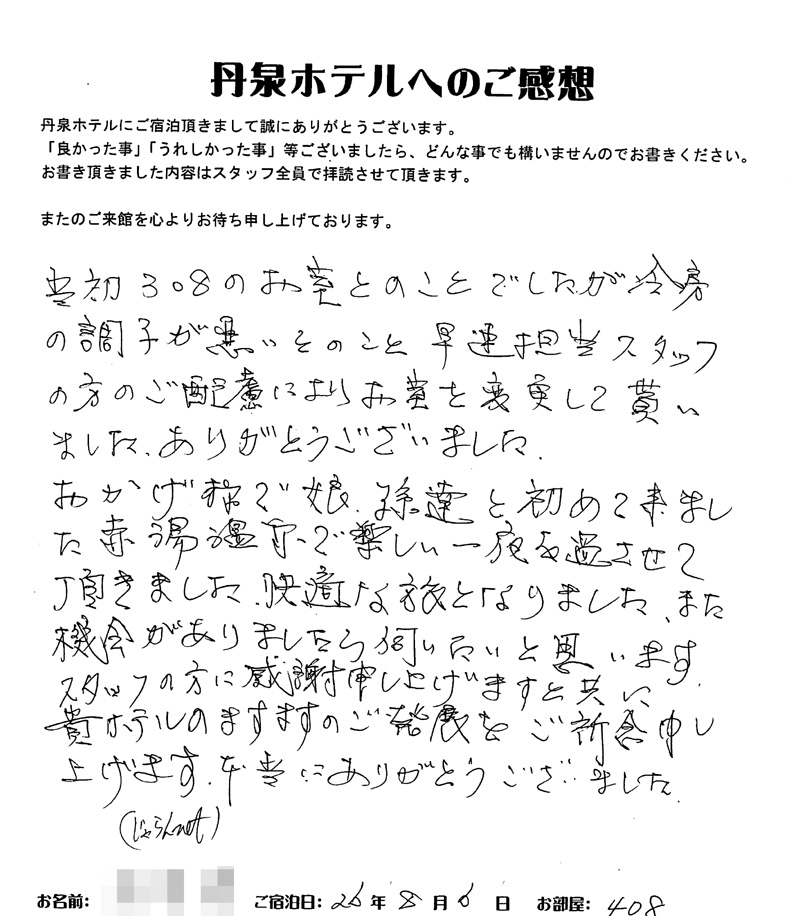 丹泉ホテルへのご感想
丹泉ホテルにご宿泊頂きまして誠にありがとうございます。
「良かった事」「うれしかった事」等ございましたら、どんな事でも構いませんのでお書きください。
お書き頂きました内容はスタッフ全員で拝読させて頂きます。
またのご来館を心よりお待ち申し上げております。
当初308のお室とのことでしたが冷房
の調子が悪いとのこと 早速担当スタッフ
の方のご配慮によりお室を変更して貰い
ました、ありがとうございました。
おかげ様で娘、孫達と初めて来まし
た赤湯温泉で楽しい一夜を過させて
頂きました、快適な旅となりました、また
機会がありましたら伺いたいと思います
スタッフの方に感謝申し上げますと共に
貴ホテルのますますのご発展をご祈念申し
上げます、本当にありがとうございました
(じゃらんnet)
お名前: ご宿泊日: 26年 8月 6日 お部屋: 408